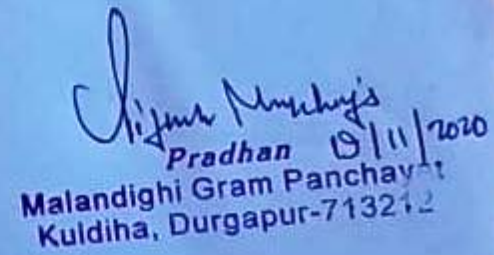 Pradhan /11/2020
Malandighi Gram Panchayat
Kuldiha, Durgapur-713212